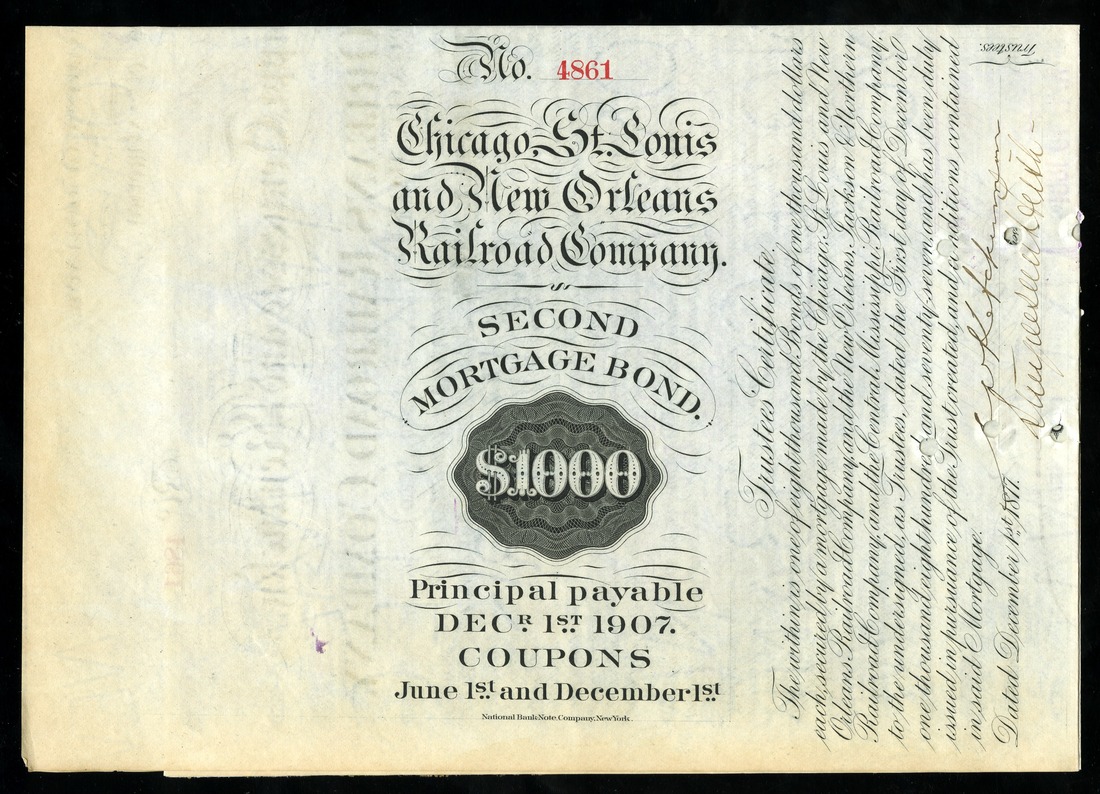 No. 4861
Chicago, St. Louis
and New Orleans
Railroad Company.
SECOND
MORTGAGE BOND.
$1000
Principal payable
DECR. 1ST. 1907.
COUPONS
June 1st. and December 1st.
National Bank Note Company, New York.
Trustees Certificate.
The within is one of eight thousand Bonds of one thousand dollars
each, secured by a mortgage made by the Chicago, St. Louis and New
Orleans Railroad Company, and the New Orleans, Jackson & Northern
Railroad Company, and the Central Mississippi Railroad Company,
to the undersigned, as Trustees, dated the First day of December
one thousand eight hundred and seventy-seven, and has been duly
issued in pursuance of the Trust created, and conditions contained
in said Mortgage.
Dated December 1st. 1877.
Trustees.